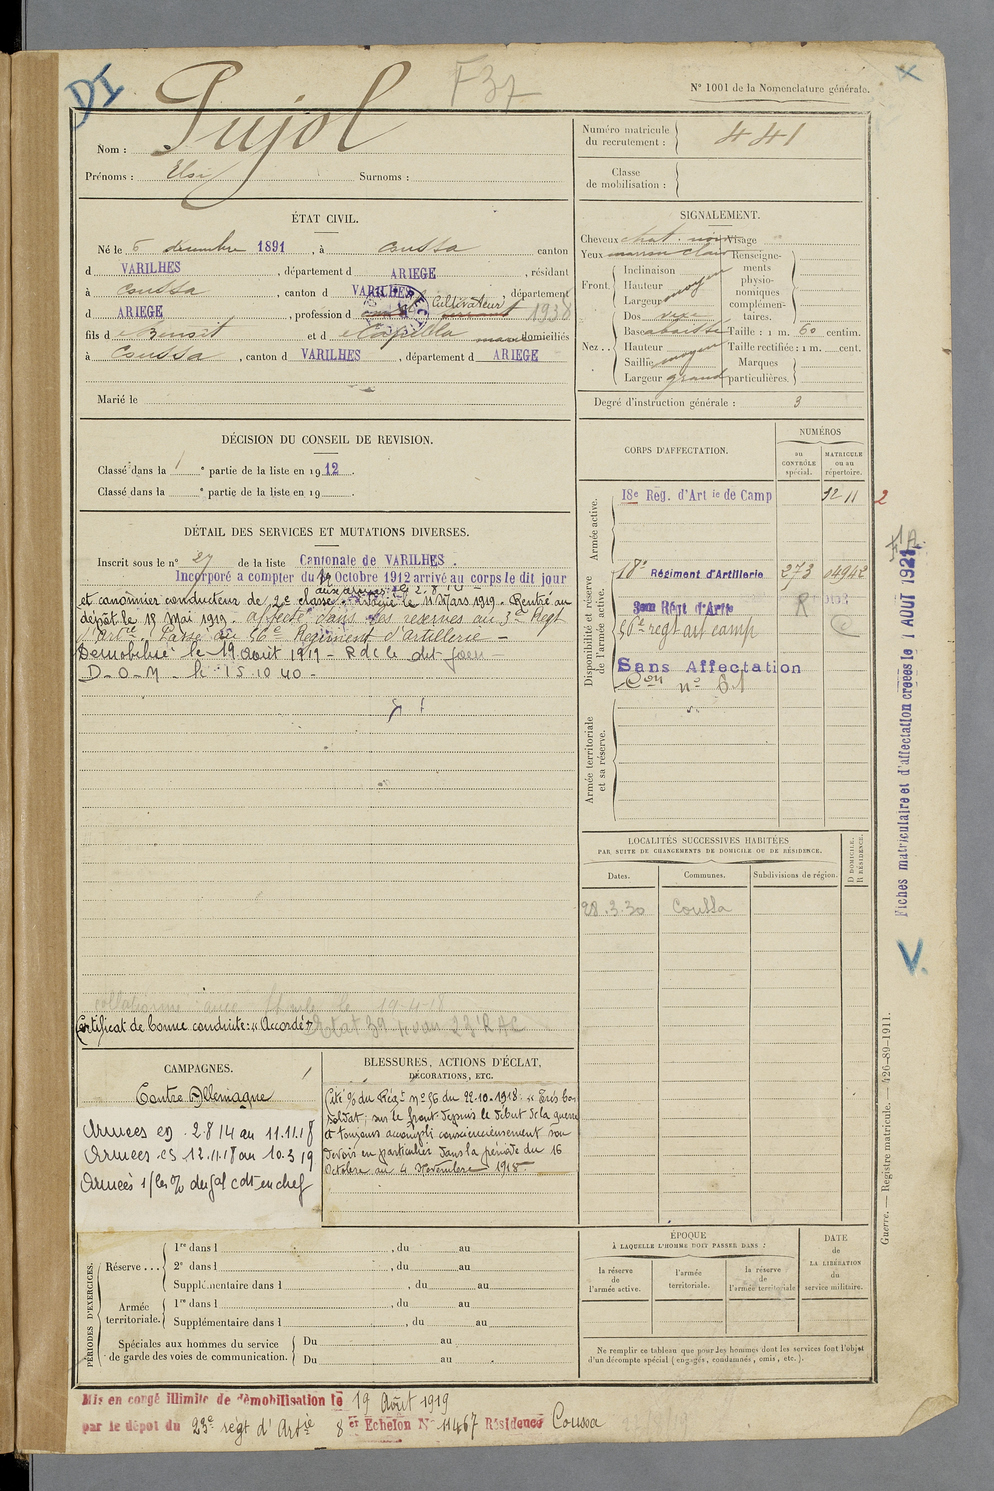 DI
F37
N° 1001 de la Nomenclature générale.
Nom : Pujol
Prénoms : Elsi Surnoms :
Numéro matricule du recrutement : 441
Classe de mobilisation :
ÉTAT CIVIL.
Né le 6 décembre 1891, à Coussa canton
d VARILHES, département d ARIEGE, résidant
à Coussa, canton d VARILHES, département
d ARIEGE, profession d Cultivateur 1938
fils d e Benoit et d domiciliés
à Coussa, canton d VARILHES, département d ARIEGE
Marié le
SIGNALEMENT.
Cheveux chat. noir Visage
Yeux marron clair Renseignements physionomiques complémentaires.
Front. Inclinaison
Hauteur moyen
Largeur
Nez . . Dos vexe
Base abaissé Taille : 1 m. 60 centim.
Hauteur Taille rectifiée : 1 m. cent.
Saillie moyen Marques
Largeur grand particulières.
Degré d'instruction générale : 3
DÉCISION DU CONSEIL DE REVISION.
Classé dans la 1 e partie de la liste en 1912.
Classé dans la e partie de la liste en 19 .
CORPS D'AFFECTATION.
NUMÉROS
au CONTRÔLE spécial.
MATRICULE ou au répertoire.
Armée active.
18e Rég. d'Art ie de Camp 1211 2
Disponibilité et réserve de l'armée active.
18e Régiment d'Artillerie 273 04942
3eme Régt d'Artie R
56e regt art camp
Sans Affectation
Con n° 51
Armée territoriale et sa réserve.
DÉTAIL DES SERVICES ET MUTATIONS DIVERSES.
Inscrit sous le n° 27 de la liste Cantonale de VARILHES.
Incorporé a compter du Octobre 1912 arrivé au corps le dit jour
et canonnier conducteur de 2e classe. aux armées le 2.8.14 le 11 Mars 1919. Rentré au
dépôt le 18 Mai 1919. affecté dans les réserves au 3e Régt
d'Artie. Passé au 56e Régiment d'artillerie —
Démobilisé le 19 août 1919 - R d c le dit jour —
D-O-M le 15.10.40 -
collationné avec le 19-4-18
Certificat de bonne conduite : "Accordé"
Etat 39 23e RAC
LOCALITÉS SUCCESSIVES HABITÉES
PAR SUITE DE CHANGEMENTS DE DOMICILE OU DE RÉSIDENCE.
Dates. Communes. Subdivisions de région. D DOMICILE. R RÉSIDENCE.
28.3.30 Coussa
CAMPAGNES.
Contre Allemagne
Armées en 2.8 14 au 11.11.18
Armées es 12.11.18 au 10.3 19
BLESSURES, ACTIONS D'ÉCLAT,
DÉCORATIONS, ETC.
Cité % du Régt n° 56 du 22.10.1918 : « Très bon
soldat, sur le front depuis le début de la guerre
et toujours accompli consciencieusement son
devoir en particulier dans la période du 16
Octobre au 4 Novembre 1918
PÉRIODES D'EXERCICES.
Réserve . . . 1re dans l , du au
2e dans l , du au
Supplémentaire dans l , du au
Armée territoriale. 1re dans l , du au
Supplémentaire dans l , du au
Spéciales aux hommes du service de garde des voies de communication. Du au
Du au
ÉPOQUE
À LAQUELLE L'HOMME DOIT PASSER DANS :
la réserve de l'armée active.
l'armée territoriale.
la réserve de l'armée territoriale
DATE de LA LIBÉRATION du service militaire.
Ne remplir ce tableau que pour les hommes dont les services font l'objet
d'un décompte spécial (engagés, condamnés, omis, etc.).
Mis en congé illimité de démobilisation le 19 Août 1919
par le dépôt du 23e regt d'Artie 8 Echelon N° 11467 Résidence Coussa
Fiches matriculaire et d'affectation créées le 1 AOUT 1921
V.
Guerre. — Registre matricule. — 426-89-1911.